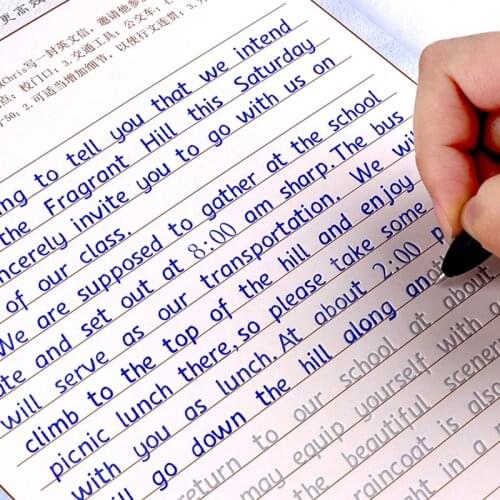 更高效
Chris写一封英文信，邀请他参
点，校门口；3.交通工具：公交车；
50；2.可适当增加细节，以使行文连贯；3.
ing to tell you that we intend
the Fragrant Hill this Saturday
sincerely invite you to go with us on
of our class.
We are supposed to gather at the school
ate and set out at 8:00 am sharp. The bus
will serve as our transportation. We wil
climb to the top of the hill and enjoy
picnic lunch there, so please take some
with you as lunch. At about 2:00 p
ll go down the hill along anot
return to our school at about
may equip yourself with a
the beautiful scener
raincoat is als
t in a